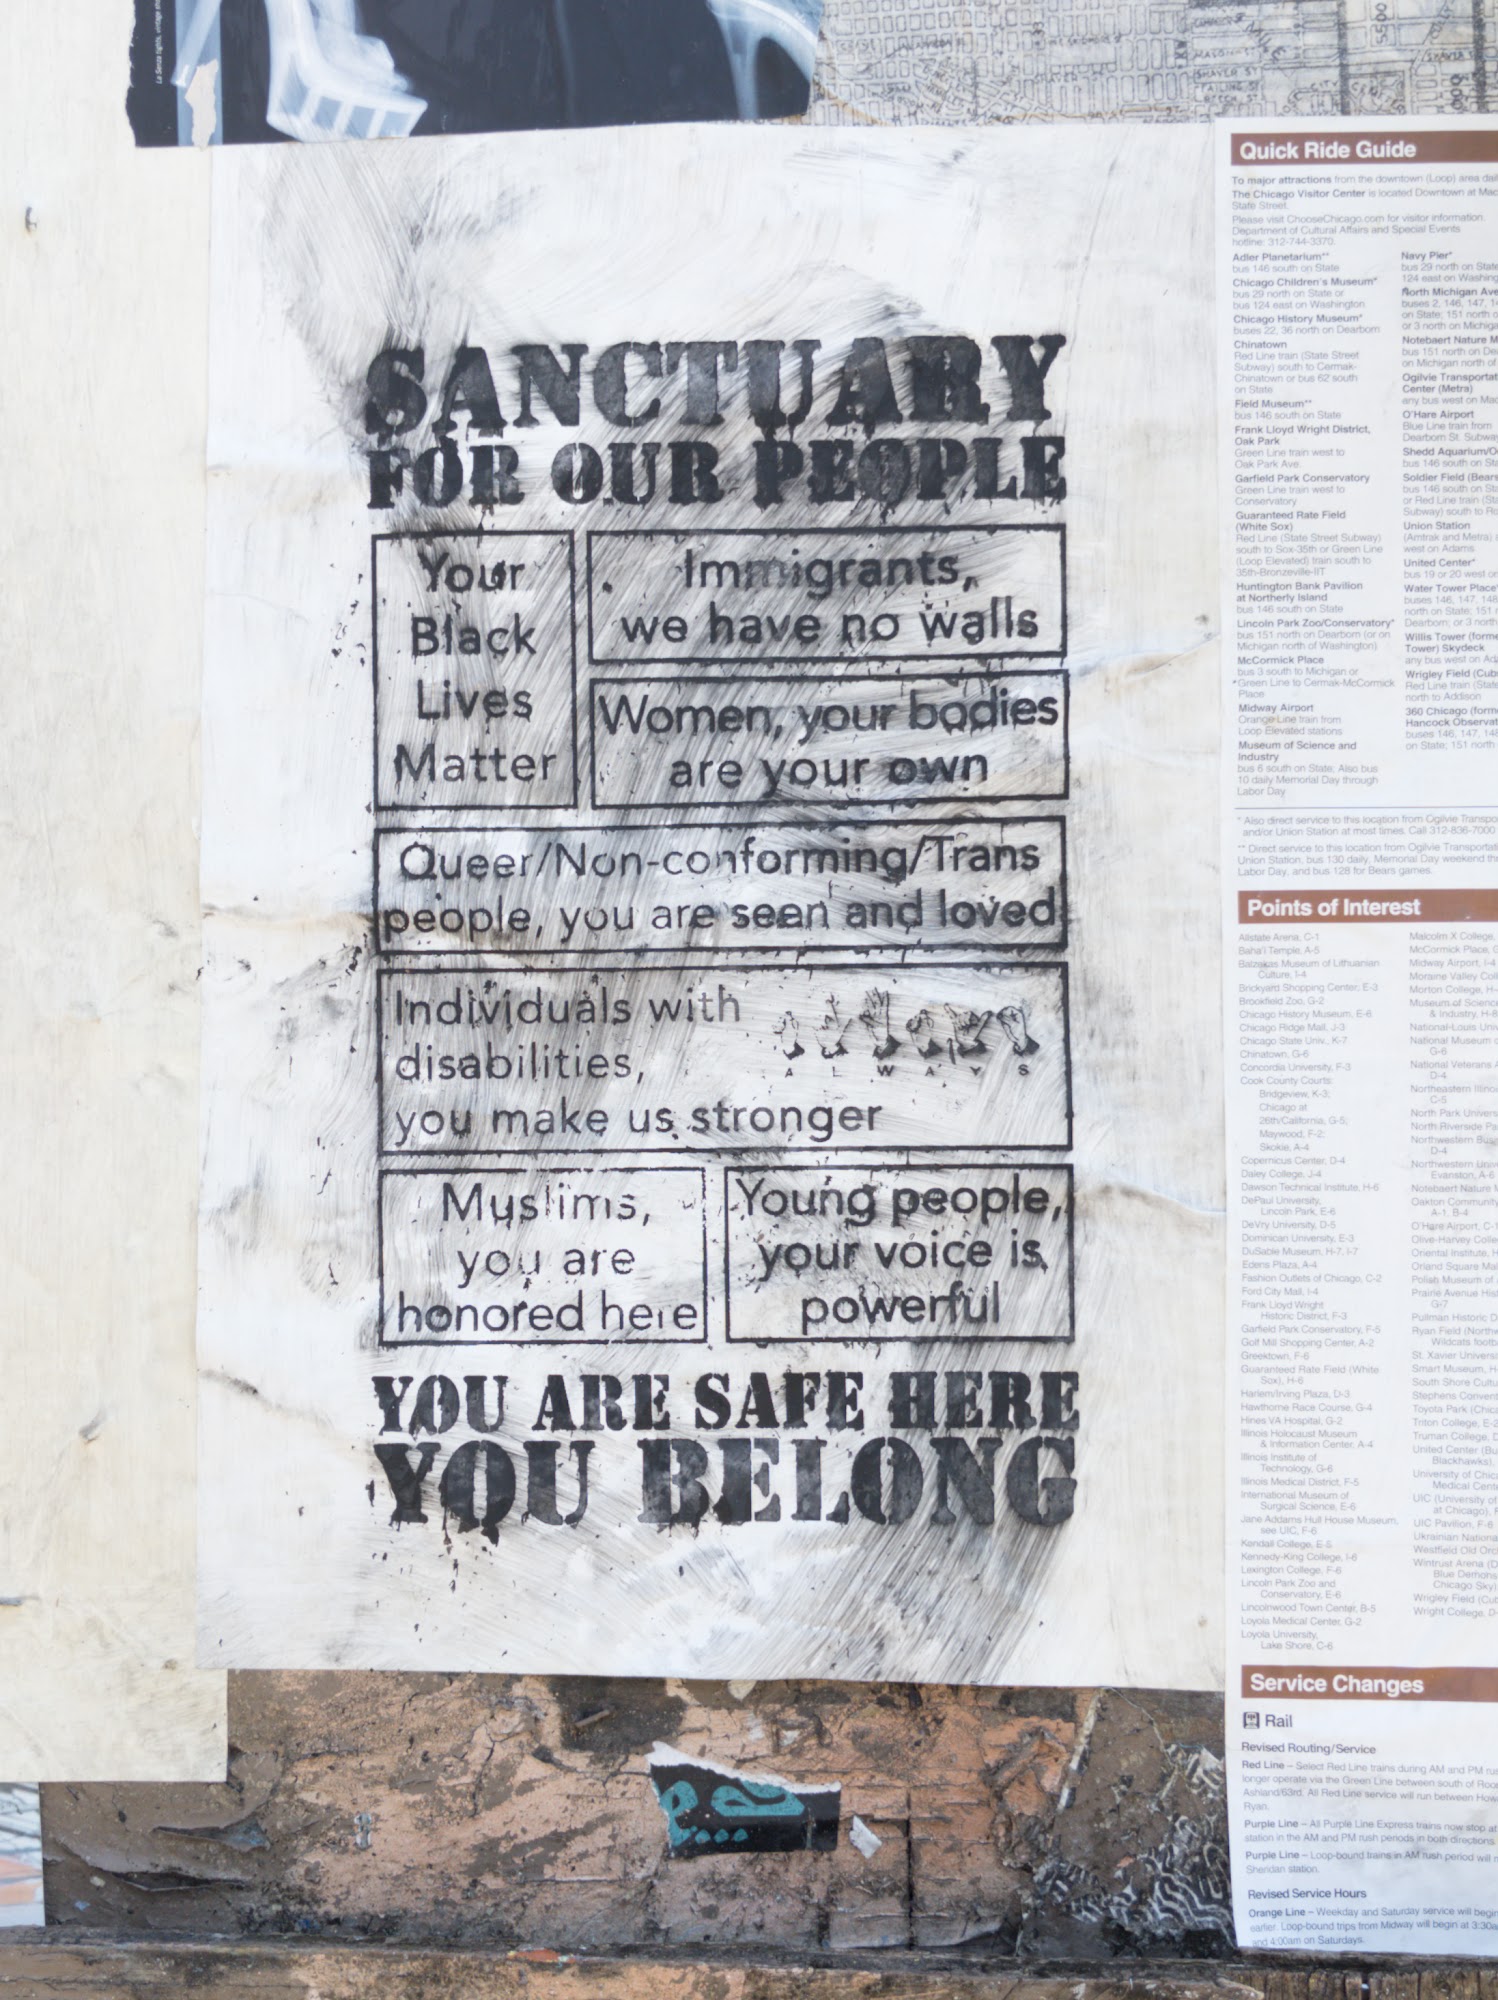 La Senza tights, vintage
SANCTUARY
FOR OUR PEOPLE
Your
Black
Lives
Matter
Immigrants,
we have no walls
Women, your bodies
are your own
Queer/Non-conforming/Trans
people, you are seen and loved
Individuals with
disabilities,
you make us stronger
A L W A Y S
Muslims,
you are
honored here
Young people,
your voice is
powerful
YOU ARE SAFE HERE
YOU BELONG
MASON ST
SHAVER ST
FAILING ST
BEECH ST
Quick Ride Guide
To major attractions from the downtown (Loop) area
The Chicago Visitor Center is located Downtown at
State Street.
Please visit ChooseChicago.com for visitor information.
Department of Cultural Affairs and Special Events
hotline: 312-744-3370.
Adler Planetarium**
bus 146 south on State
Chicago Children's Museum*
bus 29 north on State or
bus 124 east on Washington
Chicago History Museum*
buses 22, 36 north on Dearborn
Chinatown
Red Line train (State Street
Subway) south to Cermak-
Chinatown or bus 62 south
on State
Field Museum**
bus 146 south on State
Frank Lloyd Wright District,
Oak Park
Green Line train west to
Oak Park Ave.
Garfield Park Conservatory
Green Line train west to
Conservatory
Guaranteed Rate Field
(White Sox)
Red Line (State Street Subway)
south to Sox-35th or Green Line
(Loop Elevated) train south to
35th-Bronzeville-IIT
Huntington Bank Pavilion
at Northerly Island
bus 146 south on State
Lincoln Park Zoo/Conservatory*
bus 151 north on Dearborn (or on
Michigan north of Washington)
McCormick Place
bus 3 south to Michigan or
*Green Line to Cermak-McCormick
Place
Midway Airport
Orange Line train from
Loop Elevated stations
Museum of Science and
Industry
bus 6 south on State; Also bus
10 daily Memorial Day through
Labor Day
Navy Pier*
bus 29 north on State
124 east on
North Michigan
buses 2, 146, 147,
on State; 151 north
or 3 north on
Notebaert Nature
bus 151 north on
on Michigan north of
Ogilvie
Center (Metra)
any bus west on
O'Hare Airport
Blue Line train from
Dearborn St.
Shedd
bus 146 south on
Soldier Field
bus 146 south on
or Red Line train
Subway) south to
Union Station
(Amtrak and Metra)
west on Adams
United Center*
bus 19 or 20 west
Water Tower Place*
buses 146, 147, 148
north on State; 151
Dearborn; or 3 north
Willis Tower
Tower) Skydeck
any bus west on
Wrigley Field
Red Line train
north to Addison
360 Chicago
Hancock
buses 146, 147,
on State; 151 north
* Also direct service to this location from Ogilvie
and/or Union Station at most times. Call 312-836-7000
** Direct service to this location from Ogilvie
Union Station, bus 130 daily, Memorial Day weekend
Labor Day, and bus 128 for Bears games.
Points of Interest
Allstate Arena, C-1
Baha'i Temple, A-5
Balzekas Museum of Lithuanian
Culture, I-4
Brickyard Shopping Center, E-3
Brookfield Zoo, G-2
Chicago History Museum, E-6
Chicago Ridge Mall, J-3
Chicago State Univ., K-7
Chinatown, G-6
Concordia University, F-3
Cook County Courts:
Bridgeview, K-3;
Chicago at
26th/California, G-5;
Maywood, F-2;
Skokie, A-4
Copernicus Center, D-4
Daley College, J-4
Dawson Technical Institute, H-6
DePaul University,
Lincoln Park, E-6
DeVry University, D-5
Dominican University, E-3
DuSable Museum, H-7, I-7
Edens Plaza, A-4
Fashion Outlets of Chicago, C-2
Ford City Mall, I-4
Frank Lloyd Wright
Historic District, F-3
Garfield Park Conservatory, F-5
Golf Mill Shopping Center, A-2
Greektown, F-6
Guaranteed Rate Field (White
Sox), H-6
Harlem/Irving Plaza, D-3
Hawthorne Race Course, G-4
Hines VA Hospital, G-2
Illinois Holocaust Museum
& Information Center, A-4
Illinois Institute of
Technology, G-6
Illinois Medical District, F-5
International Museum of
Surgical Science, E-6
Jane Addams Hull House Museum,
see UIC, F-6
Kendall College, E-5
Kennedy-King College, I-6
Lexington College, F-6
Lincoln Park Zoo and
Conservatory, E-6
Lincolnwood Town Center, B-5
Loyola Medical Center, G-2
Loyola University,
Lake Shore, C-6
Malcolm X College,
McCormick Place,
Midway Airport, I-4
Moraine Valley
Morton College,
Museum of Science
& Industry, H-8
National-Louis
National Museum
G-6
National Veterans
D-4
Northeastern
C-5
North Park
North Riverside
Northwestern
D-4
Northwestern
Evanston, A-6
Notebaert Nature
Oakton Community
A-1, B-4
O'Hare Airport,
Olive-Harvey
Oriental Institute,
Orland Square
Polish Museum of
Prairie Avenue
G-7
Pullman Historic
Ryan Field
Wildcats
St. Xavier
Smart Museum,
South Shore
Stephens
Toyota Park
Triton College,
Truman College,
United Center
Blackhawks),
University of
Medical
UIC (University of
at Chicago),
UIC Pavilion, F-6
Ukrainian
Westfield Old
Wintrust Arena
Blue
Chicago Sky)
Wrigley Field
Wright College,
Service Changes
Rail
Revised Routing/Service
Red Line – Select Red Line trains during AM and PM
longer operate via the Green Line between south of
Ashland/63rd. All Red Line service will run between
Ryan.
Purple Line – All Purple Line Express trains now stop at
station in the AM and PM rush periods in both directions
Purple Line – Loop-bound trains in AM rush period will
Sheridan station.
Revised Service Hours
Orange Line – Weekday and Saturday service will begin
earlier. Loop-bound trips from Midway will begin at
and 4:00am on Saturdays.